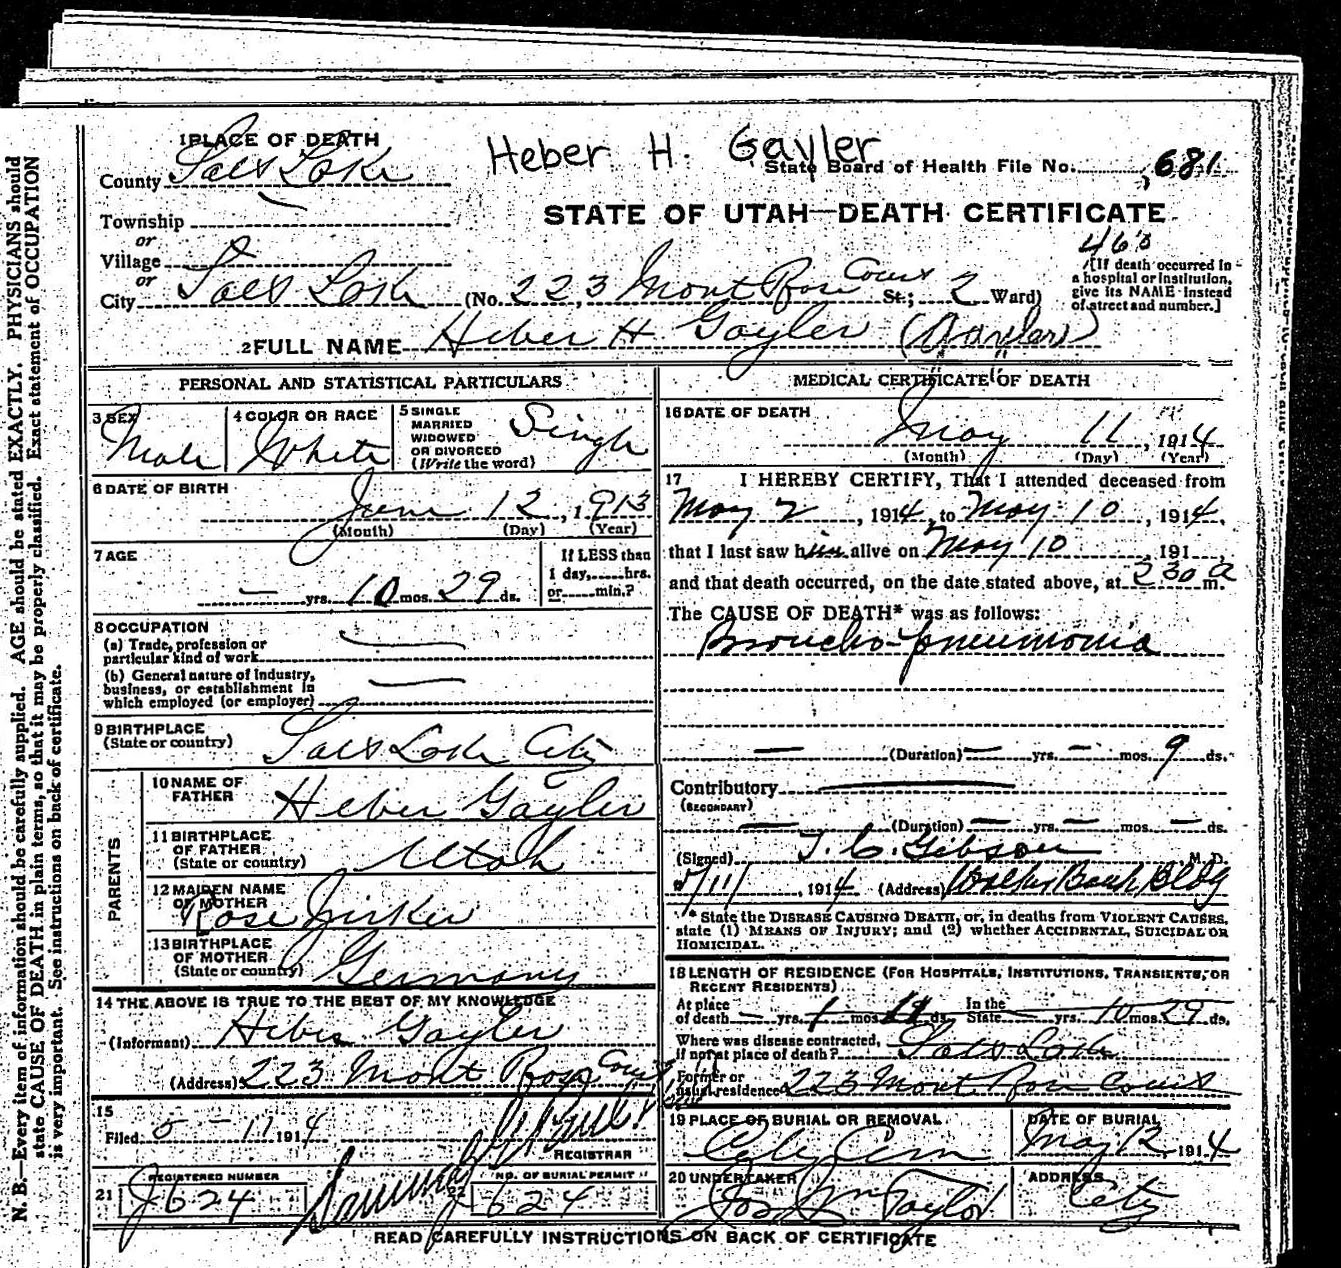 1 PLACE OF DEATH
Heber H. Gayler
State Board of Health File No. 681
County Salt Lake
STATE OF UTAH—DEATH CERTIFICATE
Township
or
Village
or
City Salt Lake (No. 223 Mont Rose Court St.; 2 Ward)
[If death occurred in
a hospital or institution,
give its NAME instead
of street and number.]
2 FULL NAME Heber H Gayler (Gayler)
PERSONAL AND STATISTICAL PARTICULARS
3 SEX Male
4 COLOR OR RACE White
5 SINGLE
MARRIED
WIDOWED
OR DIVORCED
(Write the word) Single
6 DATE OF BIRTH
June 12, 1913
(Month) (Day) (Year)
7 AGE
— yrs. 10 mos. 29 ds.
If LESS than
1 day, hrs.
or min.?
8 OCCUPATION
(a) Trade, profession or
particular kind of work
(b) General nature of industry,
business, or establishment in
which employed (or employer)
9 BIRTHPLACE
(State or country) Salt Lake City
PARENTS
10 NAME OF
FATHER Heber Gayler
11 BIRTHPLACE
OF FATHER
(State or country) Utah
12 MAIDEN NAME
OF MOTHER
Rose
13 BIRTHPLACE
OF MOTHER
(State or country) Germany
14 THE ABOVE IS TRUE TO THE BEST OF MY KNOWLEDGE
(Informant) Heber Gayler
(Address) 223 Mont Rose Court
15
Filed 5-11 1914
REGISTRAR
21 REGISTERED NUMBER
J624
22 NO. OF BURIAL PERMIT
624
MEDICAL CERTIFICATE OF DEATH
16 DATE OF DEATH
May 11, 1914
(Month) (Day) (Year)
17 I HEREBY CERTIFY, That I attended deceased from
May 2, 1914, to May 10, 1914,
that I last saw him alive on May 10, 191
and that death occurred, on the date stated above, at 2 30 a m.
The CAUSE OF DEATH* was as follows:
Broncho-pneumonia
— (Duration) — yrs. — mos. 9 ds.
Contributory
(SECONDARY)
— (Duration) — yrs. — mos. — ds.
(Signed) T. C. Gibson M. D.
5/11, 1914 (Address) Walker Bank Bldg
* State the DISEASE CAUSING DEATH, or, in deaths from VIOLENT CAUSES,
state (1) MEANS OF INJURY; and (2) whether ACCIDENTAL, SUICIDAL OR
HOMICIDAL.
18 LENGTH OF RESIDENCE (FOR HOSPITALS, INSTITUTIONS, TRANSIENTS, OR
RECENT RESIDENTS)
At place
of death — yrs. 1 mos. ds. In the
State — yrs. 10 mos. 29 ds.
Where was disease contracted,
if not at place of death? Salt Lake
Former or
usual residence 223 Mont Rose Court
19 PLACE OF BURIAL OR REMOVAL
City Cem
DATE OF BURIAL
May 12 1914
20 UNDERTAKER
Jos Wm Taylor
ADDRESS
City
READ CAREFULLY INSTRUCTIONS ON BACK OF CERTIFICATE
N. B.—Every item of information should be carefully supplied. AGE should be stated EXACTLY. PHYSICIANS should
state CAUSE OF DEATH in plain terms, so that it may be properly classified. Exact statement of OCCUPATION
is very important. See instructions on back of certificate.